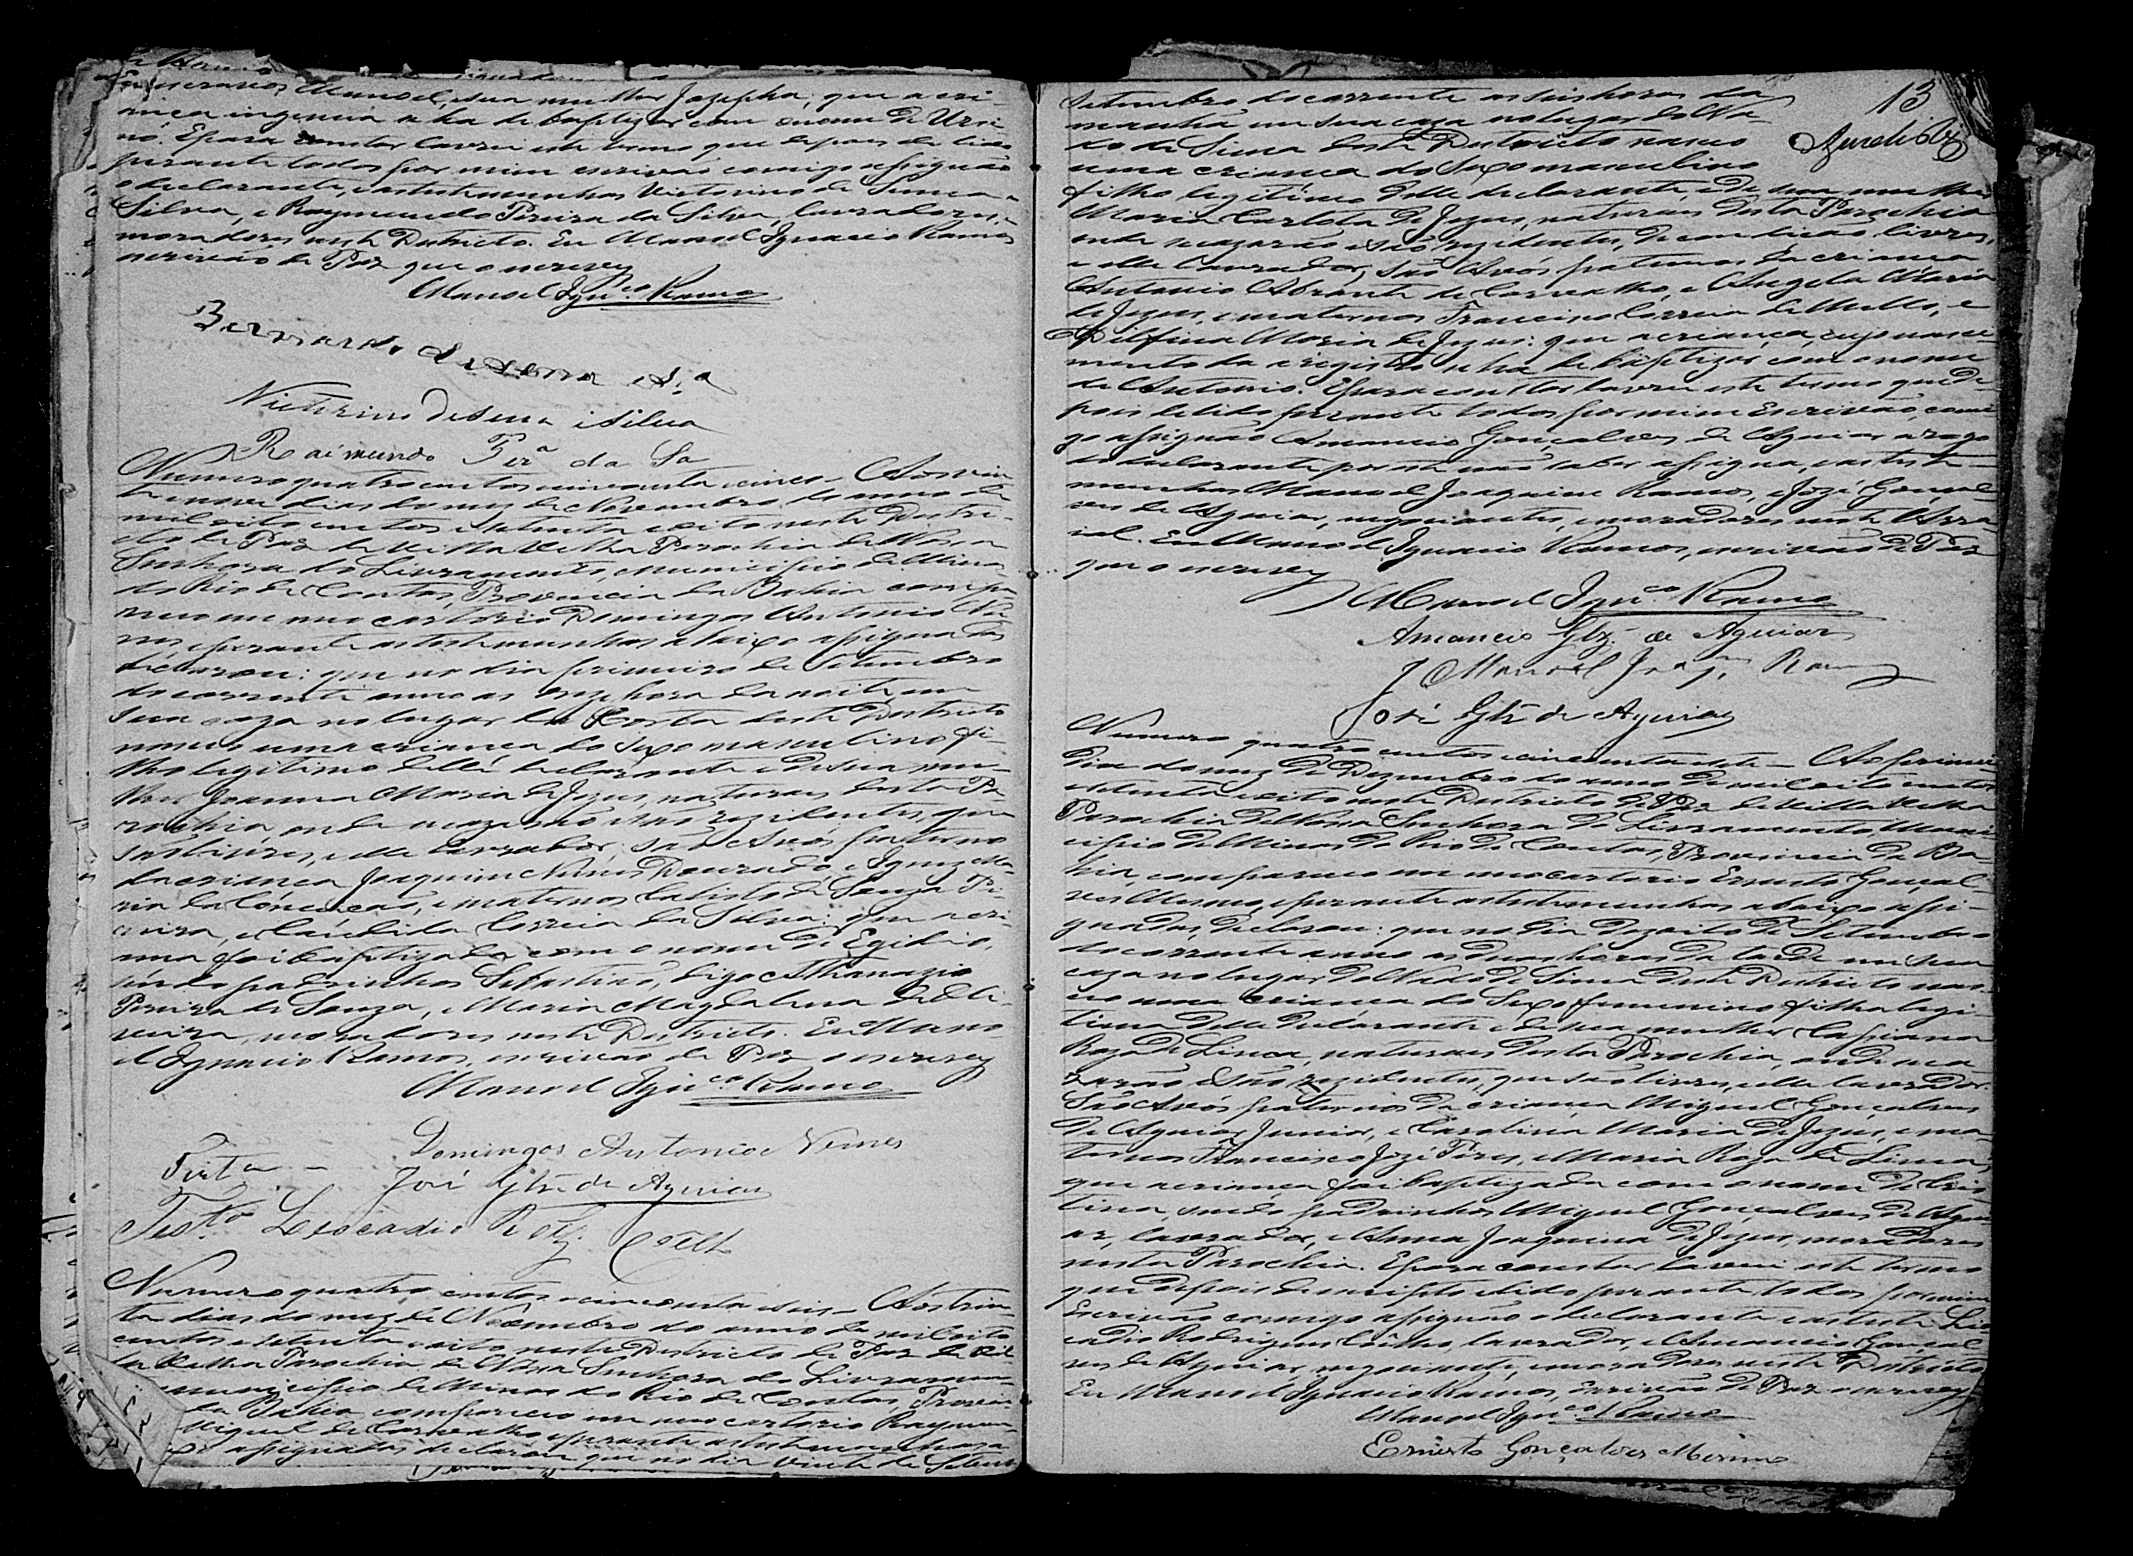 numerarios, Manoel, sua mulher Jozepha; que a cri-
ança ingenua se ha de baptizar com o nome de Ursi-
no. E para constar lavrei este termo que depois de lido
perante todos por mim escrivão comigo assignão
o declarante, e as testemunhas Victorino de Senna e
Silva, e Raymundo Pereira da Silva, lavradores, e
moradores neste Districto. Eu Manoel Ignacio Ramos
escrivão de Paz que o escrevy
Manoel Ign.co Ramos
Bernardo de Senna e S.a
Victirino de Senna i Silva
Raimundo Per.a da S.a
Numero quatro centos cincoenta e cinco — Aos vin-
te e nove dias do mez de Novembro do anno de
mil oito centos e setenta e oito neste Distri-
cto de Paz de Villa Velha Parochia de Nossa
Senhora do Livramento, Municipio de Minas
do Rio de Contas, Provincia da Bahia compa-
receo em meo cartorio Domingos Antonio Nu-
nes e perante as testemunhas abaixo assignadas
declarou: que no dia primeiro de Setembro
do corrente anno as onze hora da noite em
sua caza no lugar da Costa deste Districto
nasceo uma criança do sexo masculino fi-
lho legitimo delle declarante e de sua mu-
lher Joanna Maria de Jezus, naturaes desta Pa-
rochia onde se cazarão e são rezidentes, que
são livres, e elle lavrador; são Avós paterno
da criança Joaquim Nunes Dourado, e Ignez Ma-
ria da Conceicão, e maternos Calisto de Souza Pi-
reira, e Candida Correia da Silva; que a cri-
ança foi baptizada com o nome de Egidio,
sendo padrinhos Sebastião, digo Athanazio
Pereira de Souza, e Maria Magdalena de Oli-
veira, moradores neste Districto. Eu Mano-
el Ignacio Ramos, escrivão de Paz o escrevy
Manoel Ign.co Ramos
Domingos Antonio Nunes
José Glz de Aguiar
Test.a Leocadio Roiz Coelho
Numero quatro centos cincoenta e seis — Aos trin-
ta dias do mez de Novembro do anno de mil oito
centos e setenta e oito neste Districto de Paz de Vil-
la Velha Parochia de Nossa Senhora do Livramen-
Municipio de Minas do Rio de Contas, Provin-
da Bahia compareceo em meo cartorio Raymun-
Miguel de Carvalho e perante as testemunhas a-
assignadas declarou que no dia vinte de Setem-
13
Aureli Glz
Setembro do corrente as seis horas da
manhã em sua caza no lugar do Va-
do de Sima deste Districto nasceo
uma criança do sexo masculino
filho legitimo delle declarante, e de sua mulher
Maria Carlota de Jezus, naturaes desta Parochia
onde se cazarão e são rezidentes, de condicão livres,
e elle lavrador; são Avós paternos da criança
Antonio Abrante de Carvalho, e Angela Maria
de Jezus, e maternos Francisco Correia de Mello, e
Delfina Maria de Jezus: que a criança cujo nasci-
mento da a registo se ha de baptizar com o nome
de Antonio. E para constar lavrei este termo que de-
pois de lido perante todos por mim Escrivão, comi-
go assignão Amancio Gonçalves de Aguiar a rogo
do declarante por este não saber assignar, e as teste-
munhas Manoel Joaquim Ramos, e José Gonçal-
ves de Aguiar, negociantes, e moradores neste Arra-
ial. Eu Manoel Ignacio Ramos, escrivão de Paz
que o escrevy
Manoel Ign.co Ramos
Amancio Glz. de Aguiar
Manoel Joaq.m Ramos
José Glz de Aguiar
Numero quatro centos cincoenta e sete — Ao primeiro
dia do mez de Dezembro do anno de mil oito centos
e setenta e oito neste Districto de Paz de Villa Velha
Parochia de Nossa Senhora do Livramento, Muni-
cipio de Minas do Rio de Contas, Provincia da Ba-
hia, compareceo em meo cartorio Ernesto Gonçal-
ves Mesmo, e perante as testemunhas abaixo assi-
gnadas, declarou: que no dia dezoito de Setembro
do corrente anno as duas horas da tarde em sua
caza no lugar do Vado de Sima deste Districto nas-
ceo uma criança do Sexo femenino filha legi-
tima delle declarante e de sua mulher Cassiana
Roza de Lima, naturaes desta Parochia, onde se ca-
zarão e são rezidentes, que são livres, e elle lavrador.
São Avós paternos da criança Miguel Gonçalves
de Aguiar Junior, e Carolina Maria de Jezus, e ma-
ternos Francisco Jozé Pires, e Maria Roza de Lima,
que a criança foi baptizada com o nome de Cris-
tina, sendo padrinhos Miguel Gonçalves de Agui-
ar, lavrador, e Anna Joaquina de Jezus, moradores
nesta Parochia. E para constar lavrei este termo
que depois de escripto e lido perante todos por mim
Escrivão comigo assignão o declarante e as teste Leo-
cadio Rodrigues Coelho, lavrador, e Amancio Gonçal-
ves de Aguiar, negociante, e moradores neste Districto
Eu Manoel Ignacio Ramos, Escrivão de Paz o escrevy
Manoel Ign.co Ramos
Ernesto Gonçalves Mesmo